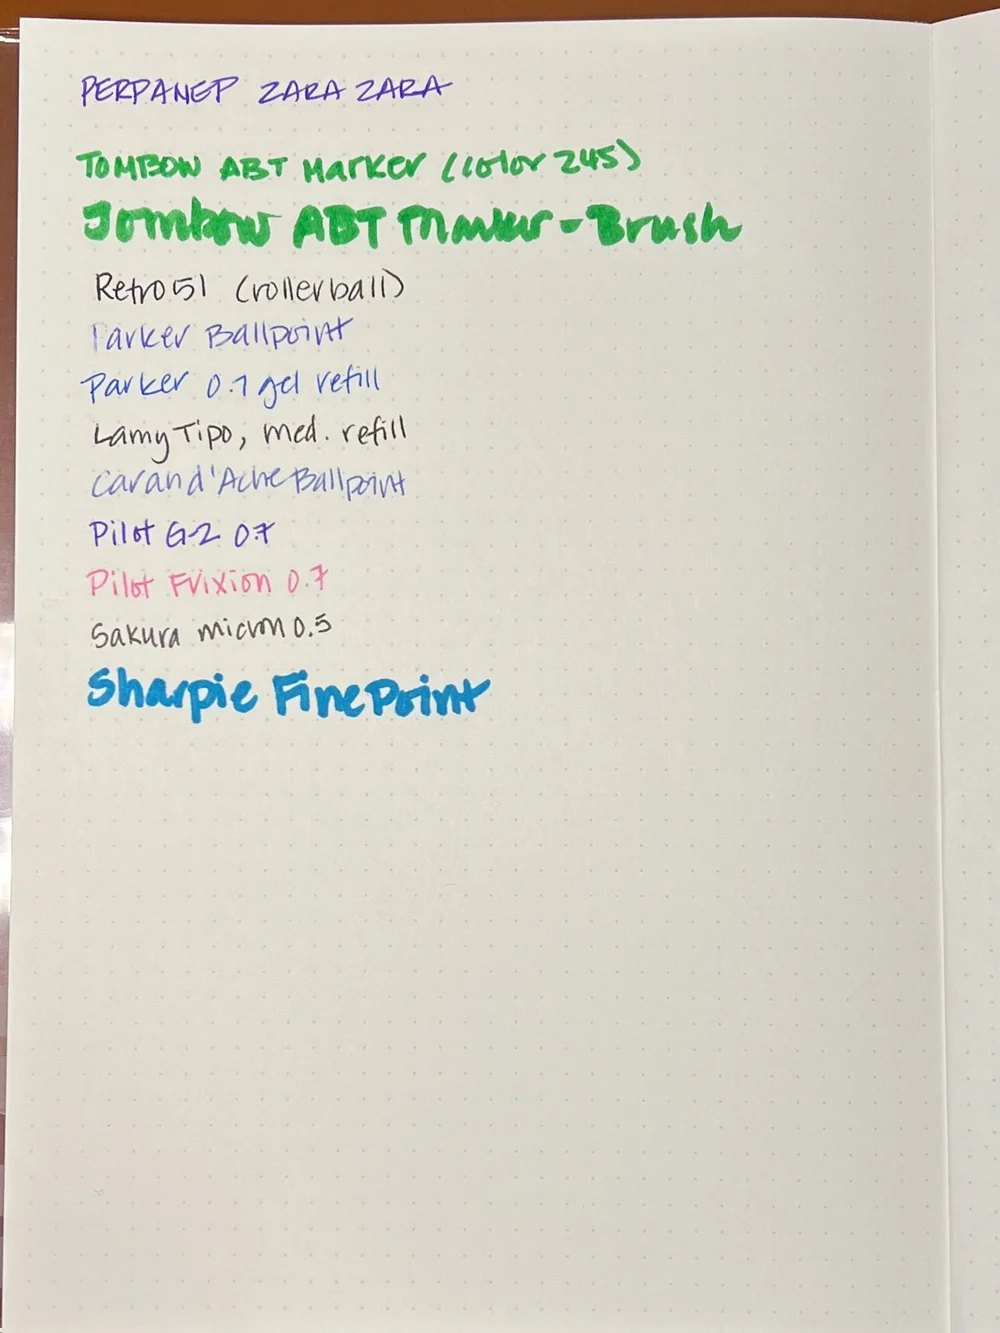 PERPANEP ZARA ZARA
TOMBOW ABT Marker (color 245)
Tombow ABT Marker - Brush
Retro 51 (rollerball)
Parker Ballpoint
Parker 0.7 gel refill
Lamy Tipo, med. refill
Caran d'Ache Ballpoint
Pilot G-2 0.7
Pilot Frixion 0.7
Sakura micron 0.5
Sharpie Fine Point